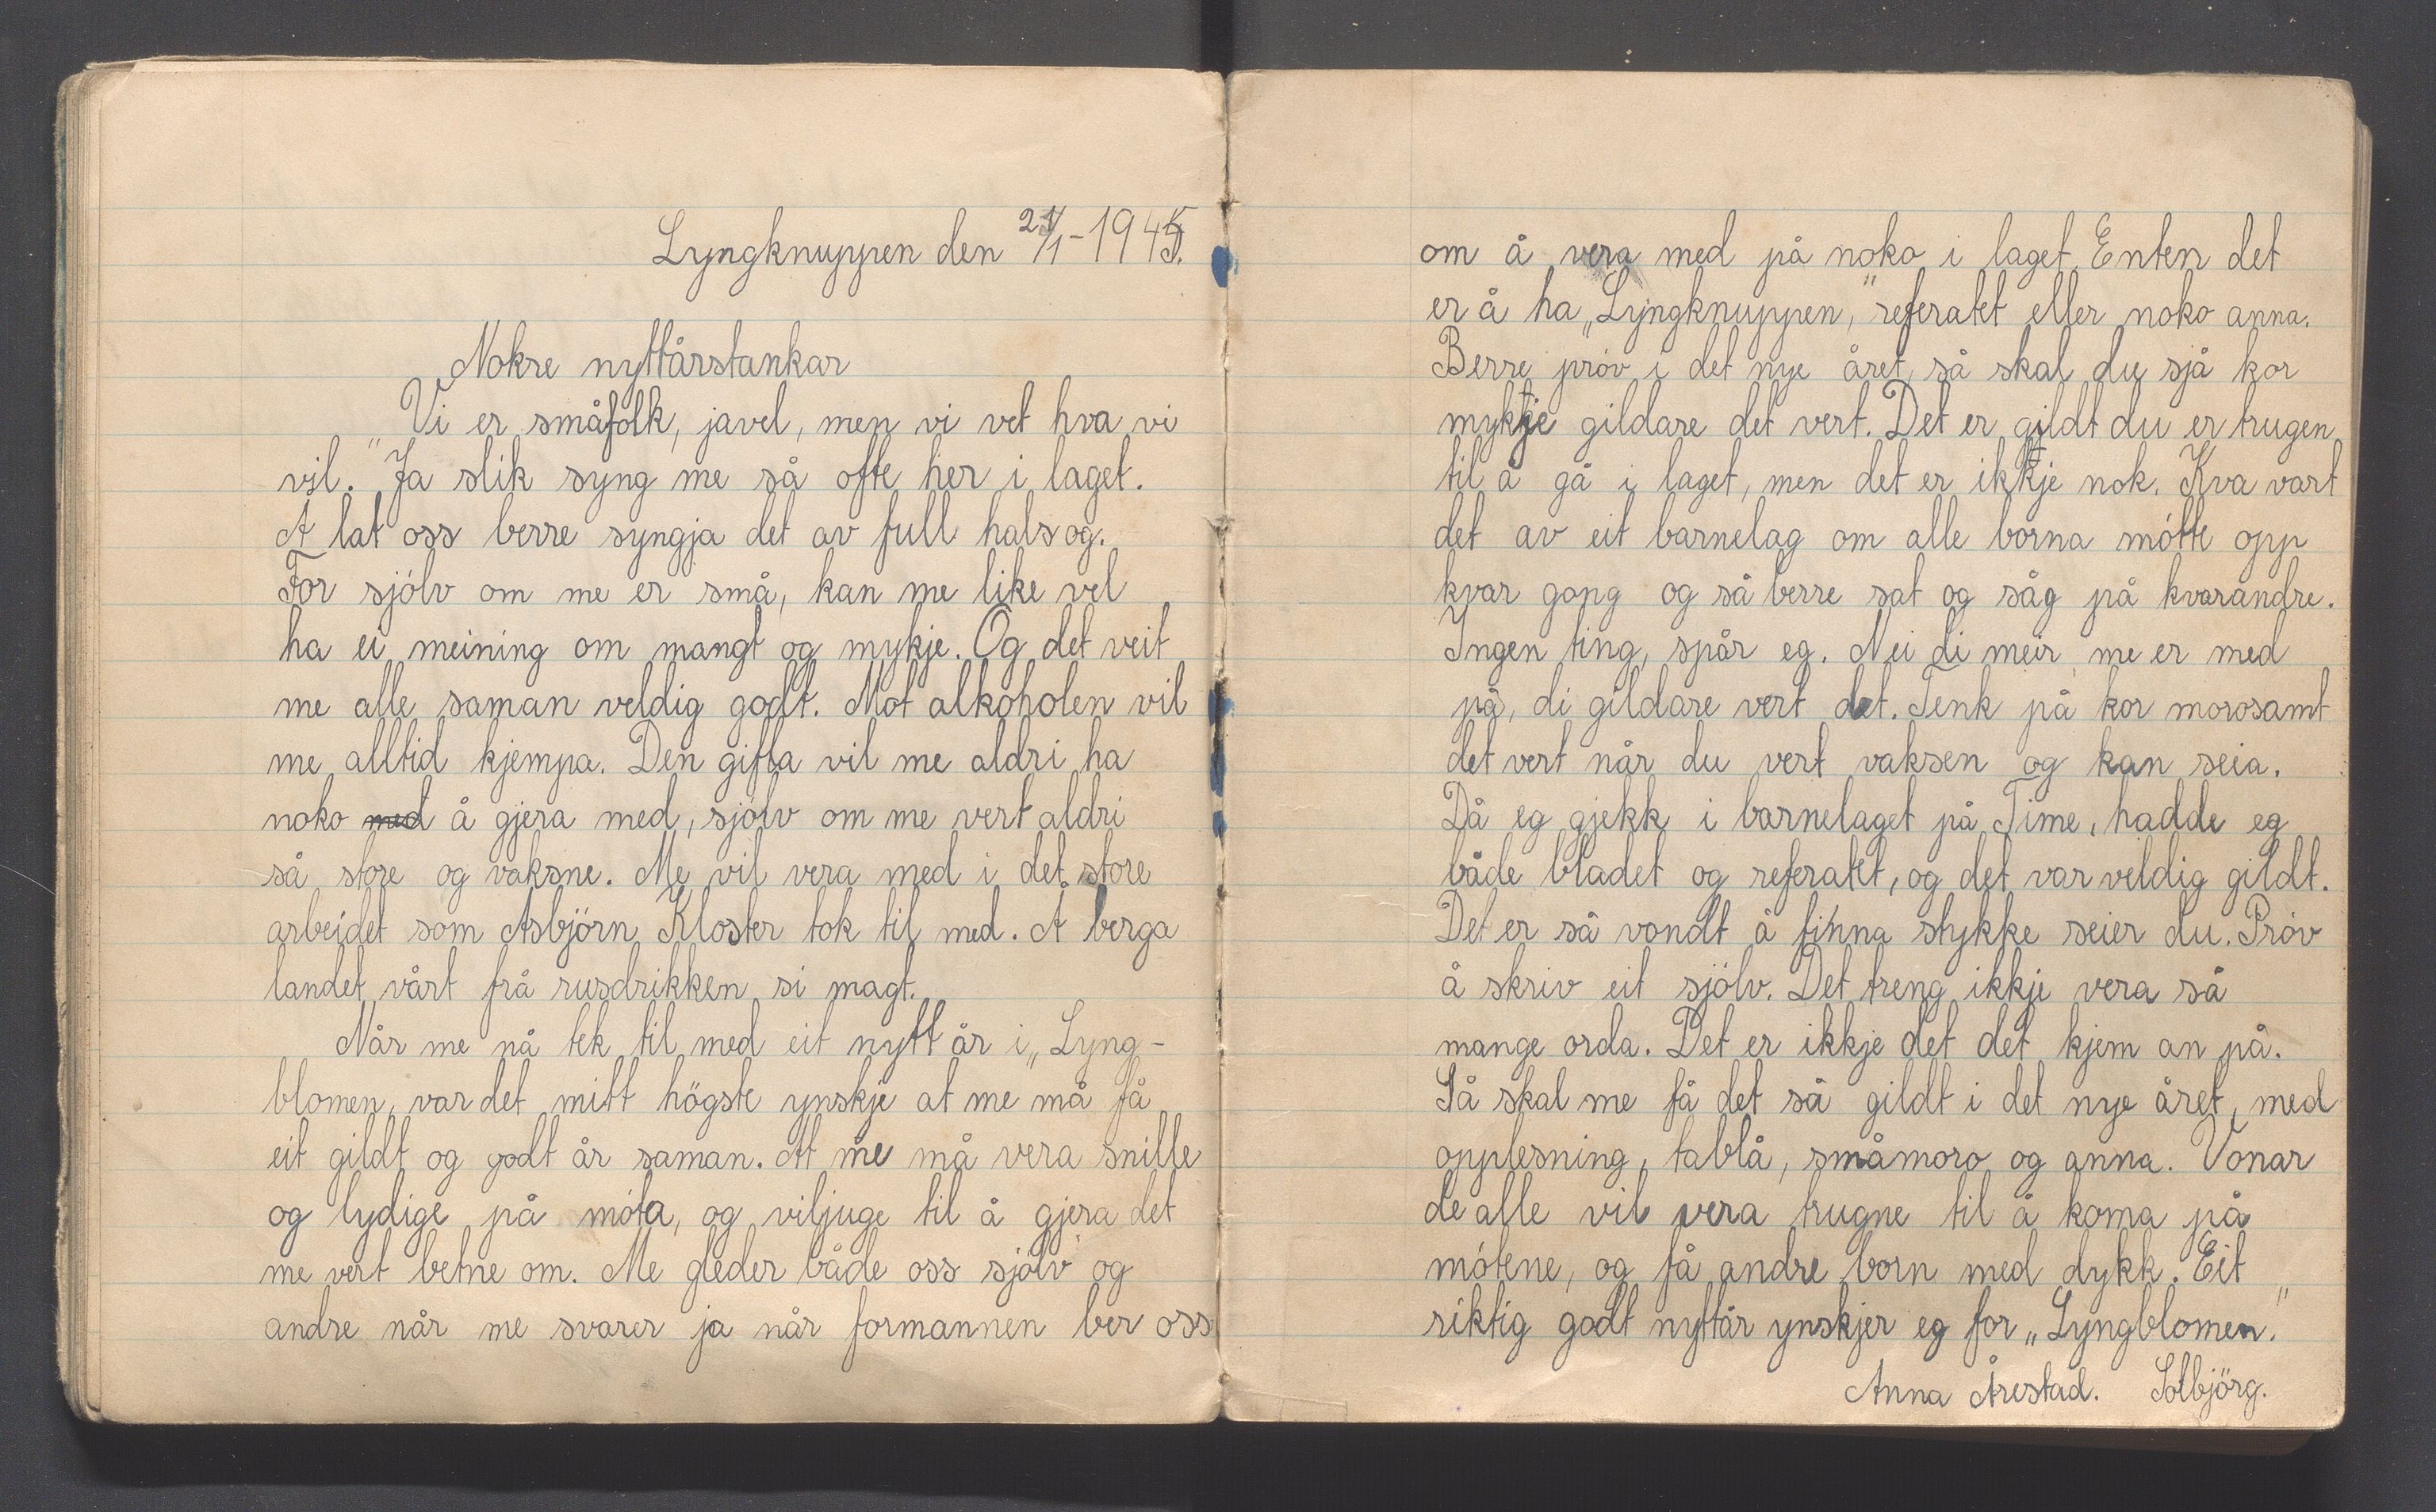 Lyngknuppen den 21/1-1945.
Nokre nyttårstankar
„Vi er småfolk, javel, men vi vet hva vi
vil." Ja slik syng me så ofte her i laget.
Å lat oss berre syngja det av full hals og.
For sjölv om me er små, kan me like vel
ha ei meining om mangt og mykje. Og det veit
me alle saman veldig godt. Mot alkoholen vil
me alltid kjempa. Den gifta vil me aldri ha
noko med å gjera med, sjölv om me vert aldri
så store og vaksne. Me vil vera med i det store
arbeidet som Asbjörn Kloster tok til med. Å berga
landet vårt frå rusdrikken si magt.
Når me nå tek til med eit nytt år i „Lyng-
blomen, var det mitt högste ynskje at me må få
eit gildt og godt år saman. At me må vera snille
og lydige på móta, og viljuge til å gjera det
me vert betne om. Me gleder både oss sjölv og
andre når me svarer ja når formannen ber oss
om å vera med på noko i laget. Enten det
er å ha „Lyngknuppen," referatet eller noko anna.
Berre próv i det nye året, så skal du sjå kor
mykje gildare det vert. Det er gildt du er trugen
til å gå i laget, men det er ikkje nok. Kva vart
det av eit barnelag om alle borna mótte opp
kvar gong og så berre sat og såg på kvarandre.
Ingen ting, spår eg. Nei di meir me er med
på, di gildare vert det. Tenk på kor morosamt
det vert når du vert vaksen og kan seia.
Då eg gjekk i barnelaget på Time, hadde eg
både bladet og referatet, og det var veldig gildt.
Det er så vondt å finna stykke seier du. Próv
å skriv eit sjólv. Det treng ikkje vera så
mange orda. Det er ikkje det det kjem an på.
Så skal me få det så gildt i det nye året, med
opplesning, tablå, småmoro og anna. Vonar
de alle vil vera trugne til å koma på
mótene, og få andre born med dykk. Eit
riktig godt nyttår ynskjer eg for „Lyngblomen."
Anna Årestad. Solbjörg.